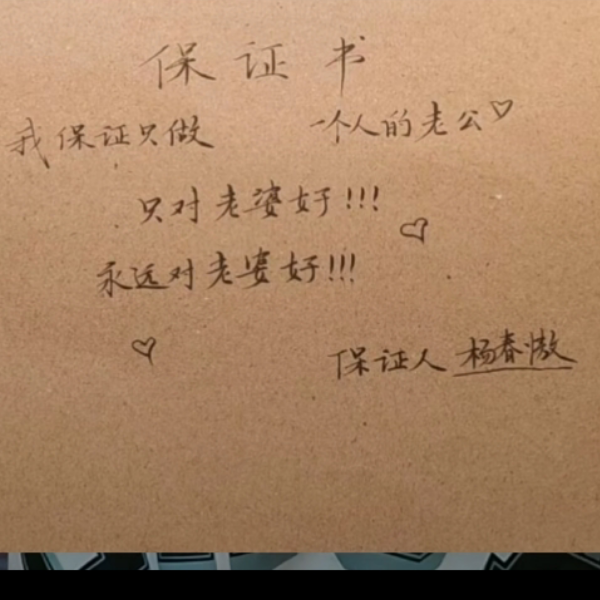 保证书
我保证只做 一个人的老公♡
只对老婆好!!!
♡
永远对老婆好!!!
♡
保证人 杨春慠